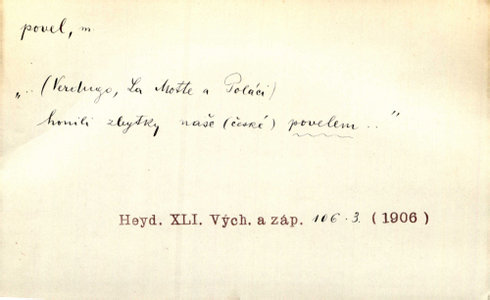 povel, m
„.. (Verdugo, La Motte a Poláci)
honili zbytky naše (české) povelem .. "
Heyd. XLI. Vých. a záp. 106. 3. (1906)